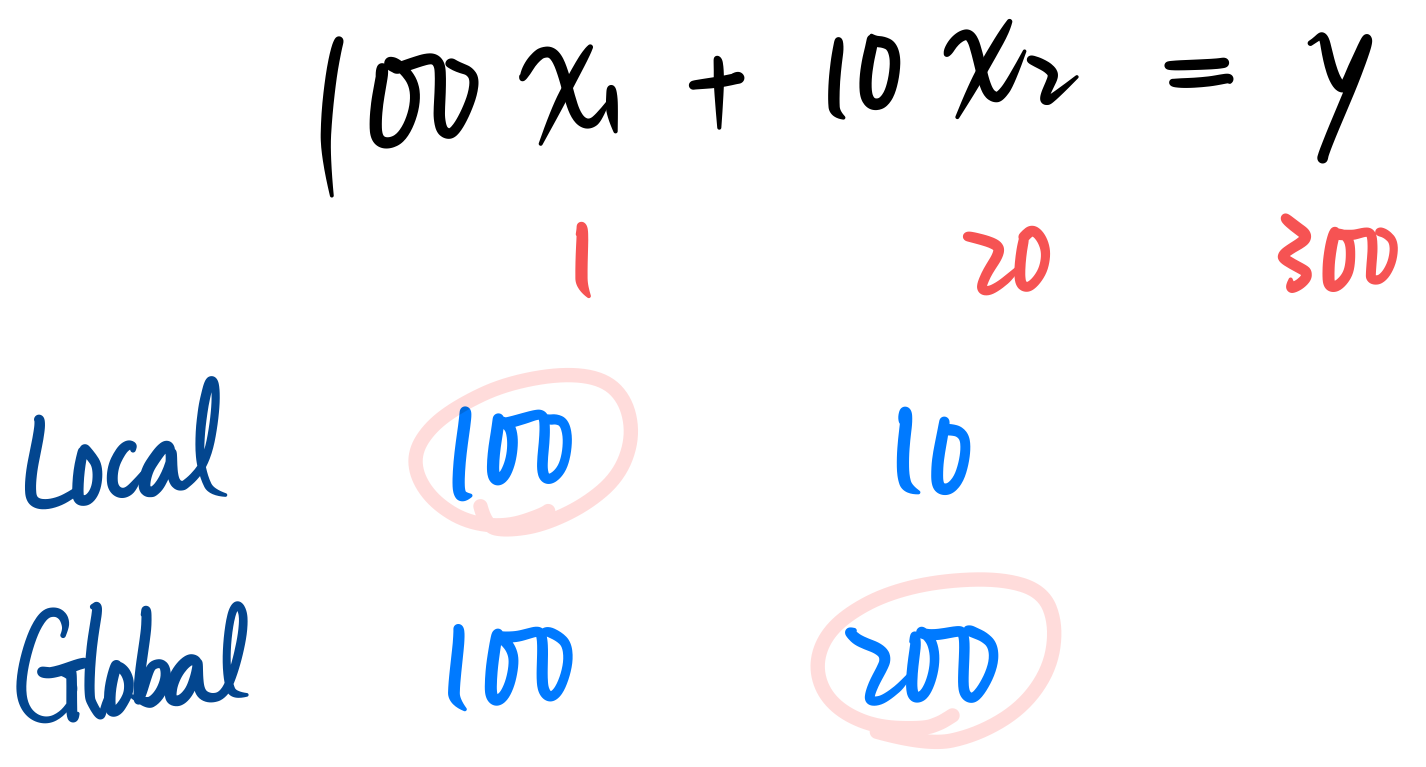 100 x₁ + 10 x₂ = y
1 20 300
Local 100 10
Global 100 200